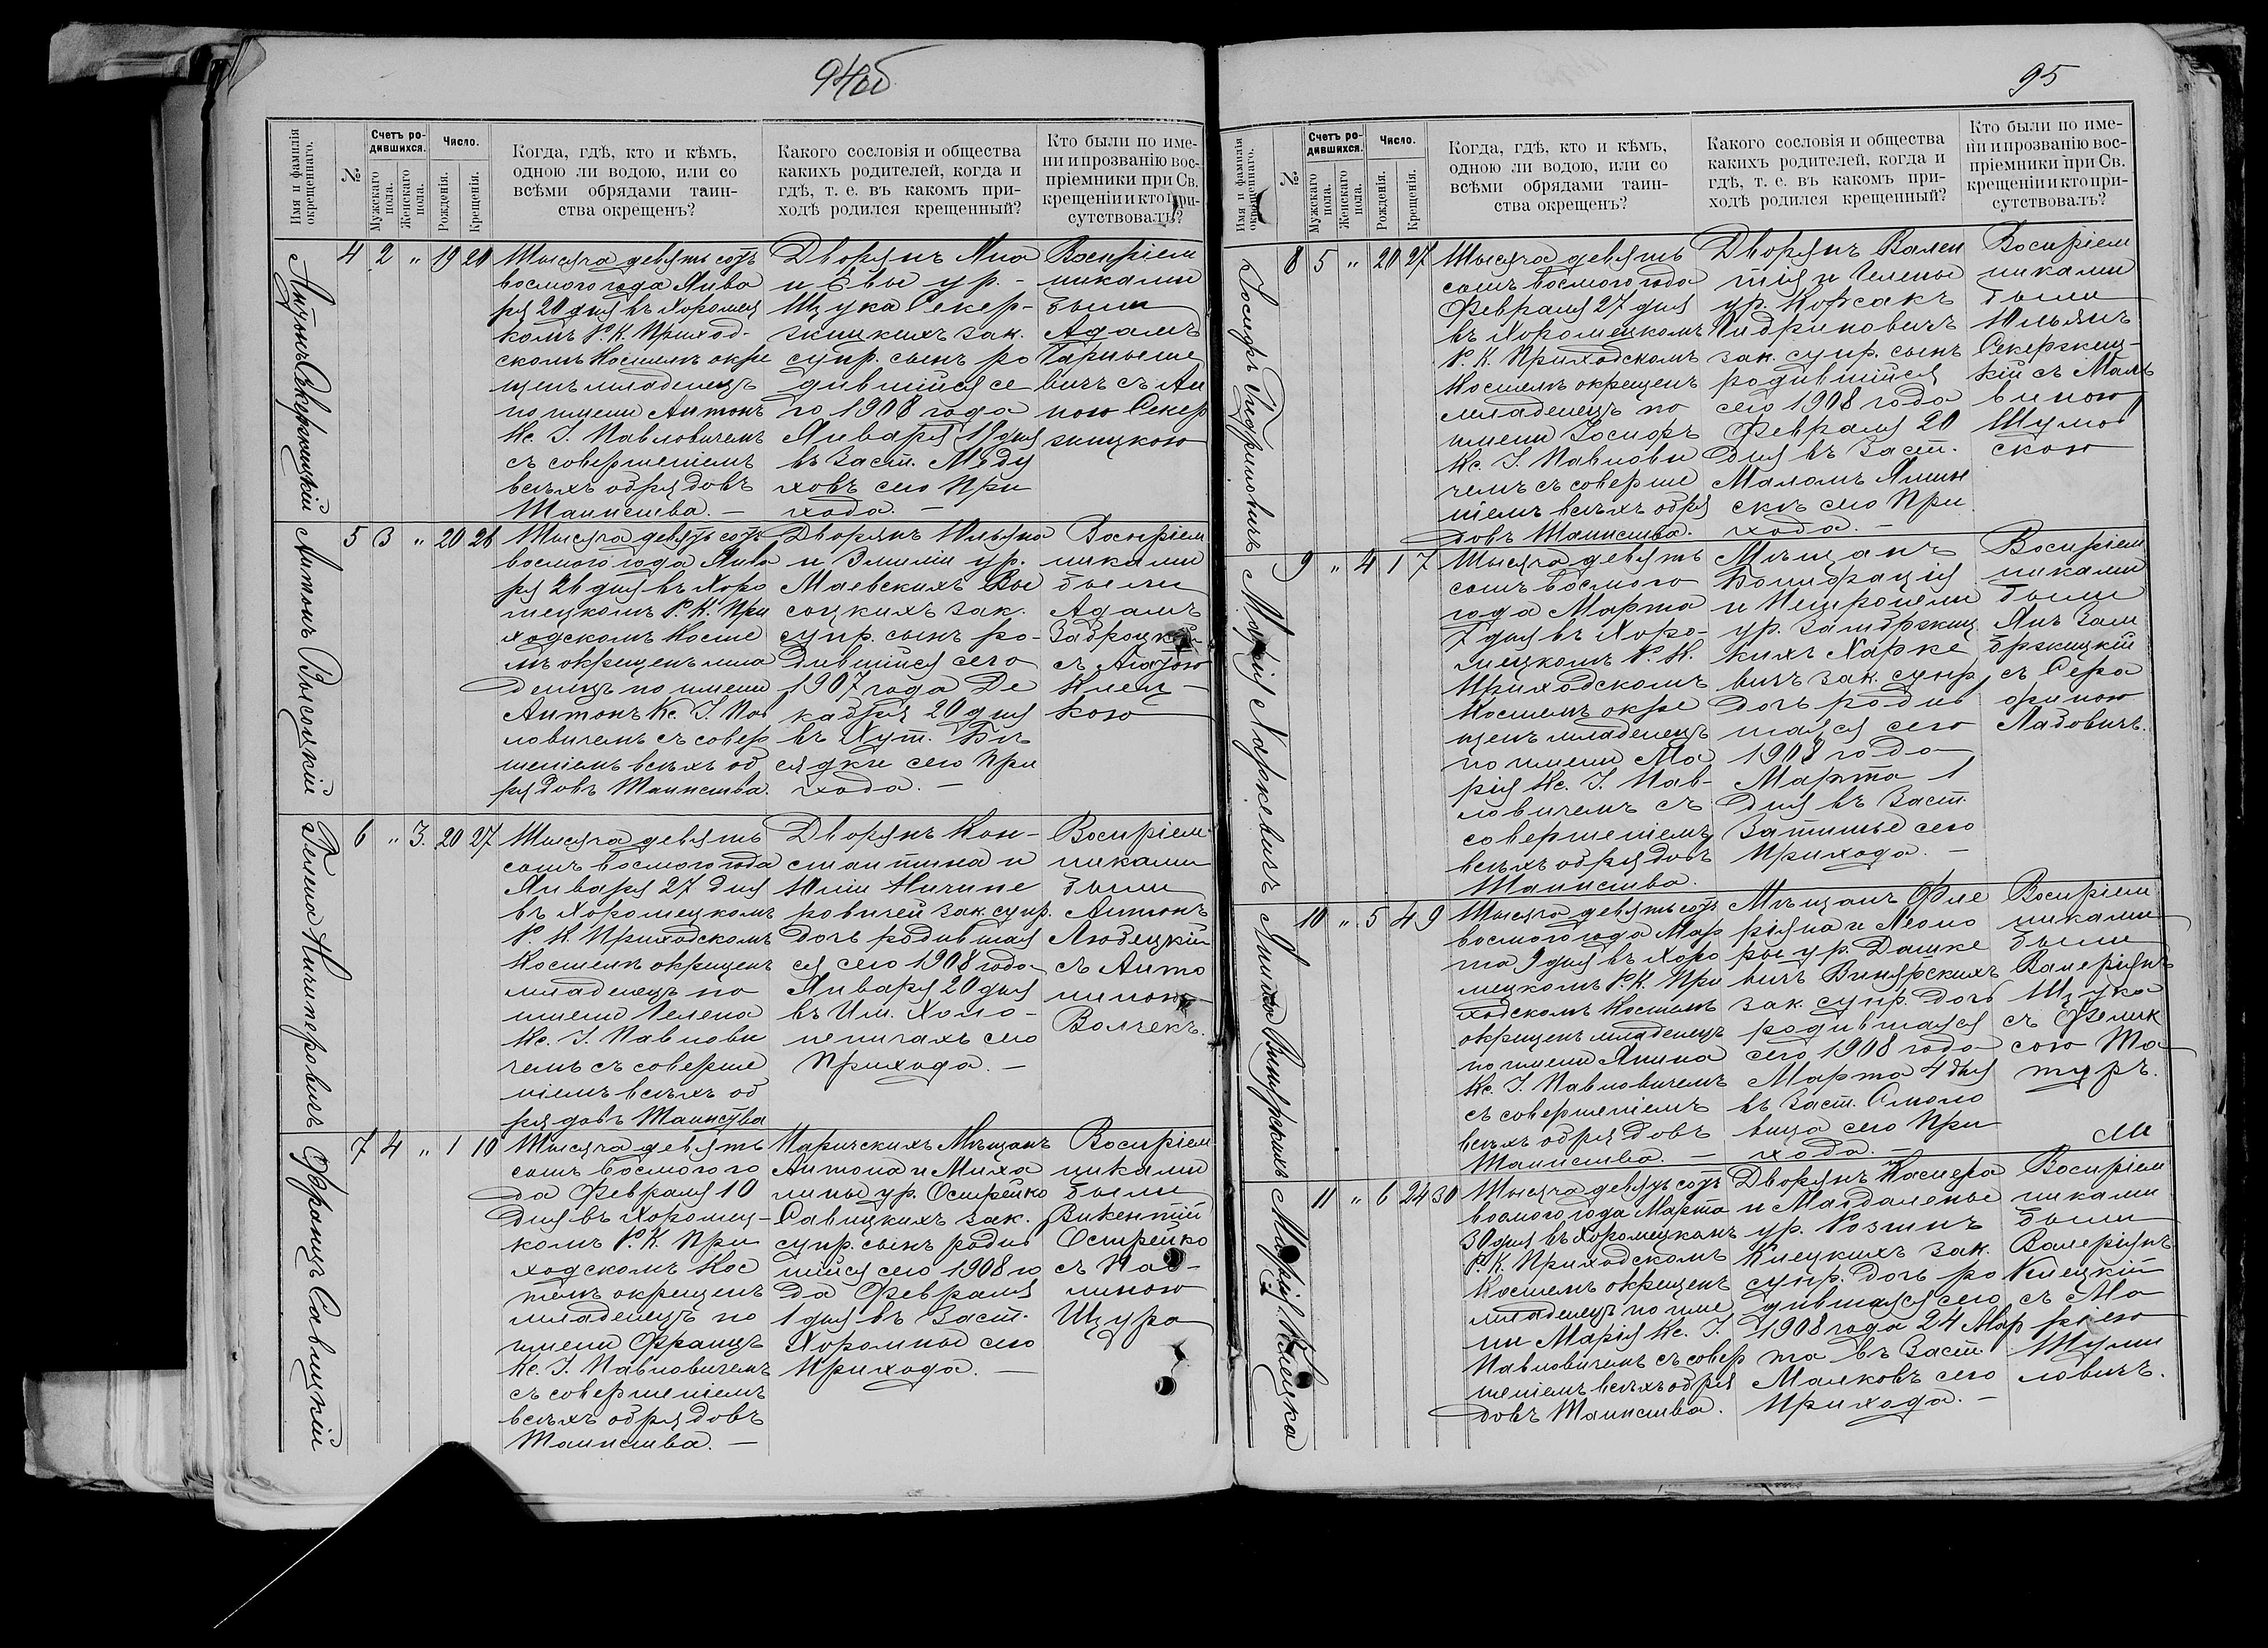 94об
Имя и фамилія окрещеннаго.
№
Счетъ ро-
дившихся.
Мужскаго пола.
Женскаго пола.
Число.
Рожденія.
Крещенія.
Когда, гдѣ, кто и кѣмъ,
одною ли водою, или со
всѣми обрядами таин-
ства окрещенъ?
Какого сословія и общества
какихъ родителей, когда и
гдѣ, т. е. въ какомъ при-
ходѣ родился крещенный?
Кто были по име-
ни и прозванію вос-
пріемники при Св.
крещеніи и кто при-
сутствовалъ?
Антонъ Секержицкій
4 2 „ 19 20
Тысяча девятьсотъ
восмого года Янва
ря 20 дня въ Хоромец
комъ Р. К. Приход-
скомъ Костелѣ окре
щенъ младенецъ
по имени Антонъ
Кс. I. Павловичемъ
съ совершеніемъ
всѣхъ обрядовъ
Таинства. —
Дворянъ
и Евы ур. -
Щука Секер-
жицкихъ зак.
супр. сынъ ро
дившійся се
го 1908 года
Января 19 дня
въ Заст. Мѣду
ховъ сего При
хода. —
Воспріем
никами
были
Адамъ
съ Ан
ною Секер
жицкою
Антонъ Высоцкій
5 3 „ 20 26
Тысяча девятьсотъ
восмого года Янва
ря 26 дня въ Хоро
мецкомъ Р. К. При
ходскомъ Косте
лѣ окрещенъ мла
денецъ по имени
Антонъ Кс. I. Пав
ловичемъ съ совер
шеніемъ всѣхъ об
рядовъ Таинства.
Дворянъ Юльяна
и Эмиліи ур.
Маевскихъ Вы
соцкихъ зак.
супр. сынъ ро-
дившійся сего
1907 года Де
кабря 20 дня
въ Хут. Бѣ
сядки сего При
хода. —
Воспріем
никами
были
Адамъ
съ
Клец-
кою
Гелена Ничипоровичъ
6 „ 3. 20 27
Тысяча девять
сотъ восмого года
Января 27 дня
въ Хоромецкомъ
Р. К. Приходскомъ
Костелѣ окрещенъ
младенецъ по
имени Гелена
Кс. I. Павлови
чемъ съ соверше
ніемъ всѣхъ об
рядовъ Таинства
Дворянъ Кон-
стантина и
Юліи Ничипе
ровичей зак. супр.
дочь родившая
ся сего 1908 года
Января 20 дня
въ Им. Холо-
пеничахъ сего
Прихода. —
Воспріем
никами
были
Антонъ
Людецкій
съ Анто
ниною
Волчекъ.
Францъ Савицкій
7 4 „ 1 10
Тысяча девять
сотъ восмого го
да Февраля 10
дня въ Хоромец-
комъ Р. К. При
ходскомъ Кос
телѣ окрещенъ
младенецъ по
имени Францъ
Кс. I. Павловичемъ
съ совершеніемъ
всѣхъ обрядовъ
Таинства. —
Паричскихъ Мѣщанъ
Антона и Миха
лины ур. Острейко
Савицкихъ зак.
супр. сынъ родив
шійся сего 1908 го
да Февраля
1 дня въ Заст.
Хоромцы сего
Прихода. —
Воспріем
никами
были
Викентій
Острейко
съ Пав-
линою
Щуро
95
Имя и фамилія окрещеннаго.
№
Счетъ ро-
дившихся.
Мужскаго пола.
Женскаго пола.
Число.
Рожденія.
Крещенія.
Когда, гдѣ, кто и кѣмъ,
одною ли водою, или со
всѣми обрядами таин-
ства окрещенъ?
Какого сословія и общества
какихъ родителей, когда и
гдѣ, т. е. въ какомъ при-
ходѣ родился крещенный?
Кто были по име-
ни и прозванію вос-
пріемники при Св.
крещеніи и кто при-
сутствовалъ?
Іосифъ
8 5 „ 20 27
Тысяча девять
сотъ восмого года
Февраля 27 дня
въ Хоромецкомъ
Р. К. Приходскомъ
Костелѣ окрещенъ
младенецъ по
имени Іосифъ
Кс. I. Павлови
чемъ съ соверше
ніемъ всѣхъ обря
довъ Таинства.
Дворянъ Вален
тія и Гелены
ур. Корсакъ
зак. супр. сынъ
родившійся
сего 1908 года
Февраля 20
дня въ Заст.
Маломъ
скъ сего При
хода. —
Воспріем
никами
были
Юльянъ
Секержиц-
кій съ Маль
виною
Шумов
скою
Марія Харкевичъ
9 „ 4 1 7
Тысяча девять
сотъ восмого
года Марта
7 дня въ Хоро-
мецкомъ Р. К.
Приходскомъ
Костелѣ окре
щенъ младенецъ
по имени Ма
рія Кс. I. Пав-
ловичемъ съ
совершеніемъ
всѣхъ обрядовъ
Таинства.
Мѣщанъ
Бонифація
и Петронели
ур. Замбржиц
кихъ Харке
вичъ зак. супр.
дочь родив
шаяся сего
1908 года
Марта 1
дня въ Заст.
Затишье сего
Прихода. —
Воспріем
никами
были
Янъ Зам
бржицкій
съ Сера
финою
Лабовичъ.
Янина Винярскихъ
10 „ 5 4 9
Тысяча девятьсотъ
восмого года Мар
та 9 дня въ Хоро
мецкомъ Р. К. При
ходскомъ Костелѣ
окрещенъ младенецъ
по имени Янина
Кс. I. Павловичемъ
съ совершеніемъ
всѣхъ обрядовъ
Таинства. —
Мѣщанъ Фло
ріяна и Леоно
ры ур. Дашке
вичъ Винярскихъ
зак. супр. дочь
родившаяся
сего 1908 года
Марта 4 дня
въ Заст. Симоно
вица сего При
хода. —
Воспріем
никами
были
Валеріянъ
Щука
съ Фелик
сою Та
туръ.
Марія Клецка
11 „ 6 24 30
Тысяча девятьсотъ
восмого года Марта
30 дня въ Хоромецкомъ
Р. К. Приходскомъ
Костелѣ окрещенъ
младенецъ по име
ни Марія Кс. I.
Павловичемъ съ совер
шеніемъ всѣхъ обря
довъ Таинства.
Дворянъ Каспера
и Магдалены
ур. Розмикъ
Клецкихъ зак.
супр. дочь ро
дившаяся сего
1908 года 24 Мар
та въ Заст.
Малковъ сего
Прихода. —
Воспріем
никами
были
Валеріянъ
Клецкій
съ Ма
ріею
Шули
ловичъ.